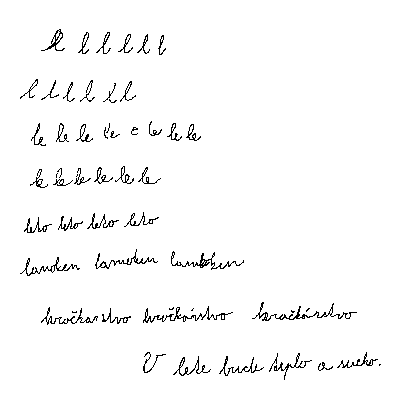 l l l l l l
l l l l l l
le le le le e le le le
le le le le le le
leto leto leto leto
lanoken lamoken
kvočkarstvo kvočkárstvo kvačkárstvo
V lete bude teplo a sucho.